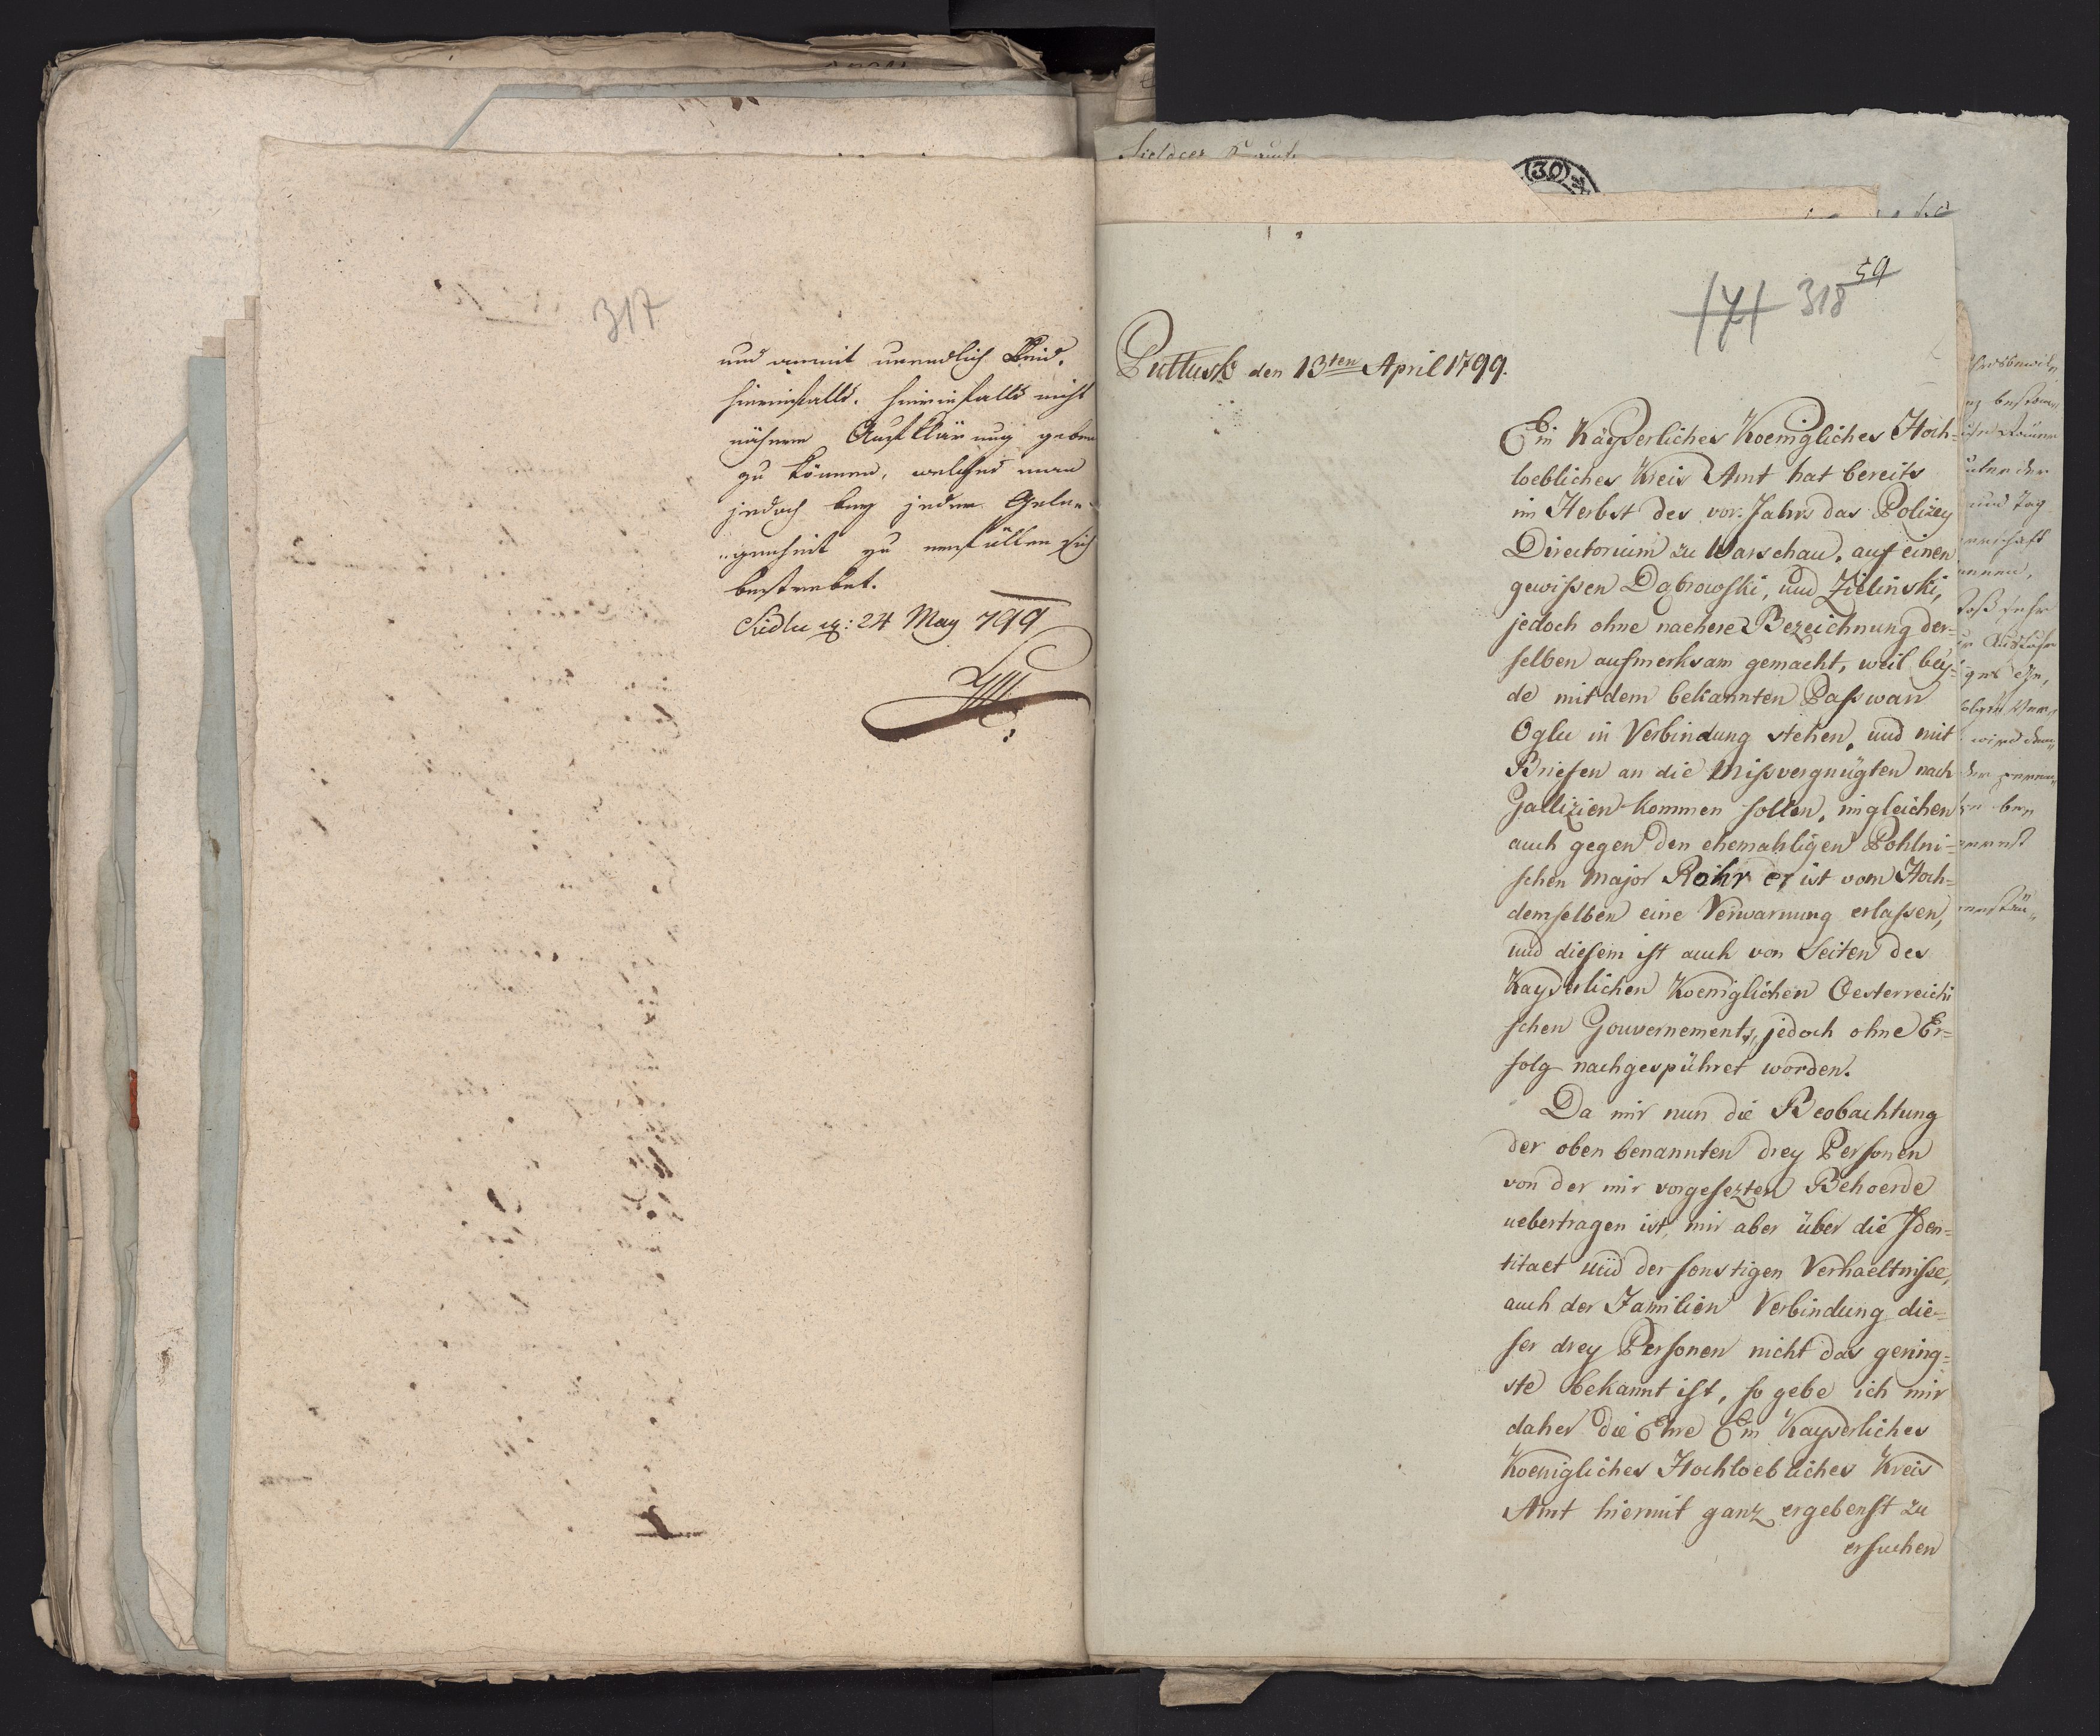 317
und ammit unendlich Leid,
hierinfalls. hierinfalls nicht
nähere Aufklärung geben
zu können, welches man
jedoch bey jeder Gele„
„genheit zu erfüllen sich
bestrebet.
Siedlce 24 May 799
Sieldcer
(30)
59
171 318
Pultusk den 13ten April 1799.
Ein Kayserliches Koenigliches Hoch=
loebliches Kreis Amt hat bereits
im Herbst des vor. Jahrs das Polizey
Directorium zu Warschau, auf einen
gewißen Dąbrowski, und Zielinski,
jedoch ohne naehere Bezeichnung der=
selben aufmerksam gemacht, weil bey=
de mit dem bekannten Paßwan
Oglu in Verbindung stehen, und mit
Briefen an die Mißvergnügten nach
Gallizien kommen sollen, imgleichen
auch gegen den ehemahligen Pohlni=
schen Major Rohr er ist vom Hoch=
demselben eine Verwarnung erlaßen,
und diesem ist auch von Seiten des
Kayserlichen Koeniglichen Oesterreichi
schen Gouvernements, jedoch ohne Er=
folg nachgespühret worden.
Da mir nun die Beobachtung
der oben benannten drey Personen
von der mir vorgesezten Behoerde
uebertragen ist, mir aber über die Iden=
titaet und der sonstigen Verhaeltniße,
auch der Familien Verbindung die=
ser drey Personen nicht das gering=
ste bekannt ist, so gebe ich mir
daher die Ehre Ein Kayserliches
Koenigliches Hochloebliches Kreis
Amt hiermit ganz ergebenst zu
ersuchen